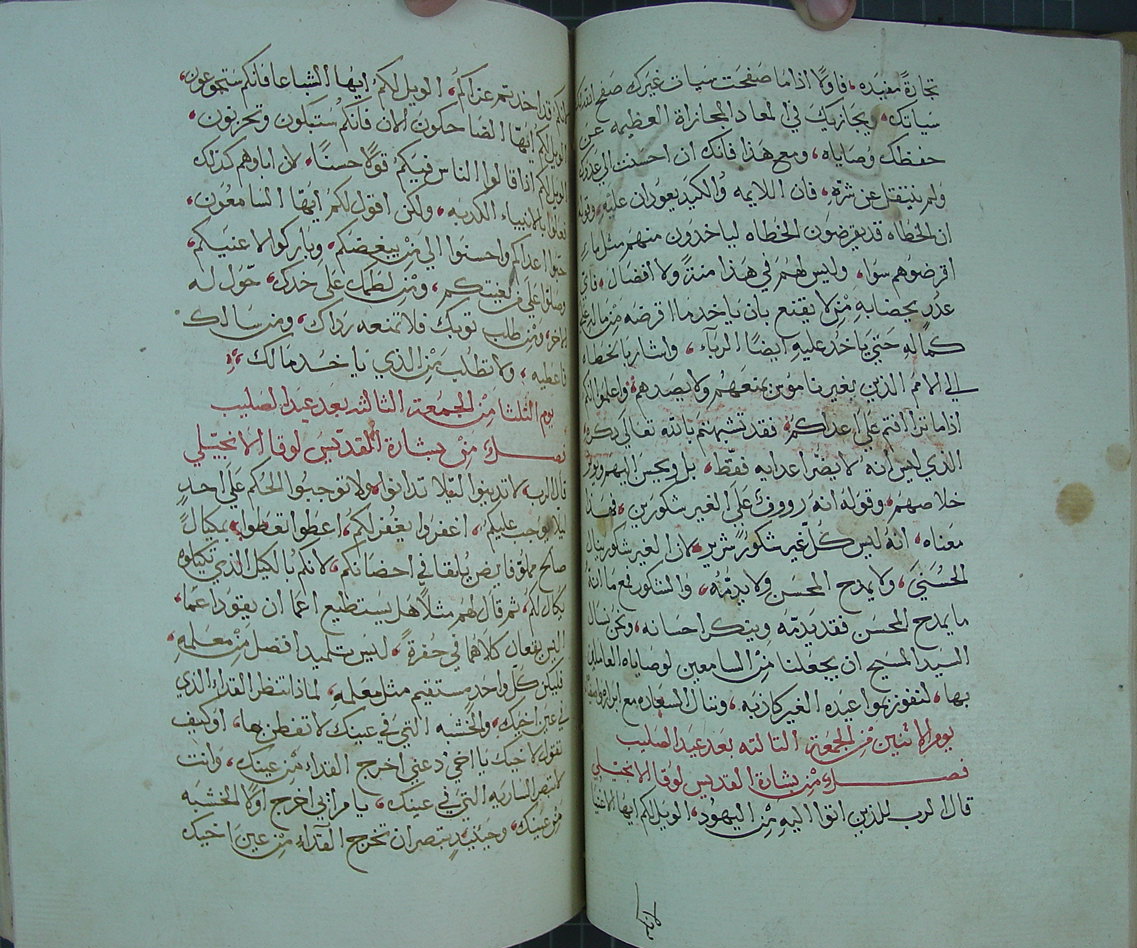 تجارةً مفيده، فاولًا اذا ما صفحت سيات غيرك صفح الله لك
سياتك، ويجازيك في المعاد المجازاة العظيمه عن
حفظك وصاياه، ومع هذا فانك ان احسنت الى عدوك
ولم ينتقل عن شره، فان اللايمه والكيد يعودان عليه، وقوله
ان الخطاه قد يقرضون الخطاه لياخدون منهم مثل ما
اقرضوهم سوا، وليس لهم في هذا منة ولا افضال، فاي
عدو يحضا به من لا يقتنع بان ياخد ما اقرضه من ماله
كماله حتي ياخد عليه ايضًا الرباء، واشار بالخطاه
الي الامم الذين بغير ناموس يمنعهم ولا يصدهم، واعلموا انكم
اذا ما ترافتم علي اعداكم، فقد تشبهتم بالله تعالى ذكره
الذي ليس انه لا يضر اعدايه فقط، بل ويحسن اليهم ويوثر
خلاصهم، وقوله انه رووف على الغير شكورين، فهذا
معناه، انه ليس كل غير شكور شرير، لان الغير شكور ينال
الحسني، ولا يمدح المحسن ولا يدمه، والشكور مع ما انه
ما يمدح المحسن فقد يدمه وينكر احسانه، ونحن نسال
السيد المسيح ان يجعلنا من السامعين لوصاياه العاملين
بها، لنفوز بمواعيده الغير كاذبه، وننال السعاده مع ابراره
يوم الاثنين من الجمعة الثالثه بعد عيد الصليب
فصل من بشارة القديس لوقا الانجيلي
قال الرب للذين اتوا اليه من اليهود، الويل لكم ايها الاغنيا
لانكم قد اخدتم عزاكم، الويل لكم ايها الشباعا فانكم ستجوعون،
الويل لكم ايها الضاحكون الان فانكم ستبكون وتحزنون،
الويل لكم اذا قالوا الناس فيكم قولًا حسنًا، لان اباوهم كذلك
فعلوا بالانبياء الكدبه، ولكن اقول لكم ايها السامعون،
حبوا اعداكم واحسنوا الي من يبغضكم، وباركوا لاعنيكم،
وصلوا على من يعنتكم، ومن لطمك على خدك، حول له
الاخر، ومن طلب توبك فلا تمنعه رداك، ومن سالك
فاعطيه، ولا تطلب من الذي ياخد مالك
يوم الثلثا من الجمعة الثالثه بعد عيد الصليب
فصل من بشارة القديس لوقا الانجيلي
قال الرب لا تدينوا لئلا تدانوا، ولا توجبوا الحكم على احد
ليلا يوجب عليكم، اغفروا يغفر لكم، اعطوا تعطوا، بمكيال
صالح مملو فايض يلقا في احضانكم، لانكم بالكيل الذي تكيلون
يكال لكم، ثم قال لهم مثلًا هل يستطيع اعما ان يقود اعما،
اليس يقعان كلاهما في حفرة، ليس تلميد افضل من معلمه،
فليكن كل واحد مستقيم مثل معلمه، لماذا تنظر القداء الذي
في عين اخيك، والخشبه التي في عينك لا تفطن بها، او كيف
تقول لاخيك يا اخي دعني اخرج القداء من عينك، وانت
لا تبصر الساريه التي في عينك، يا مرايي اخرج اولًا الخشبه
من عينك، وحينيد تبصر ان تخرج القداء من عين اخيك